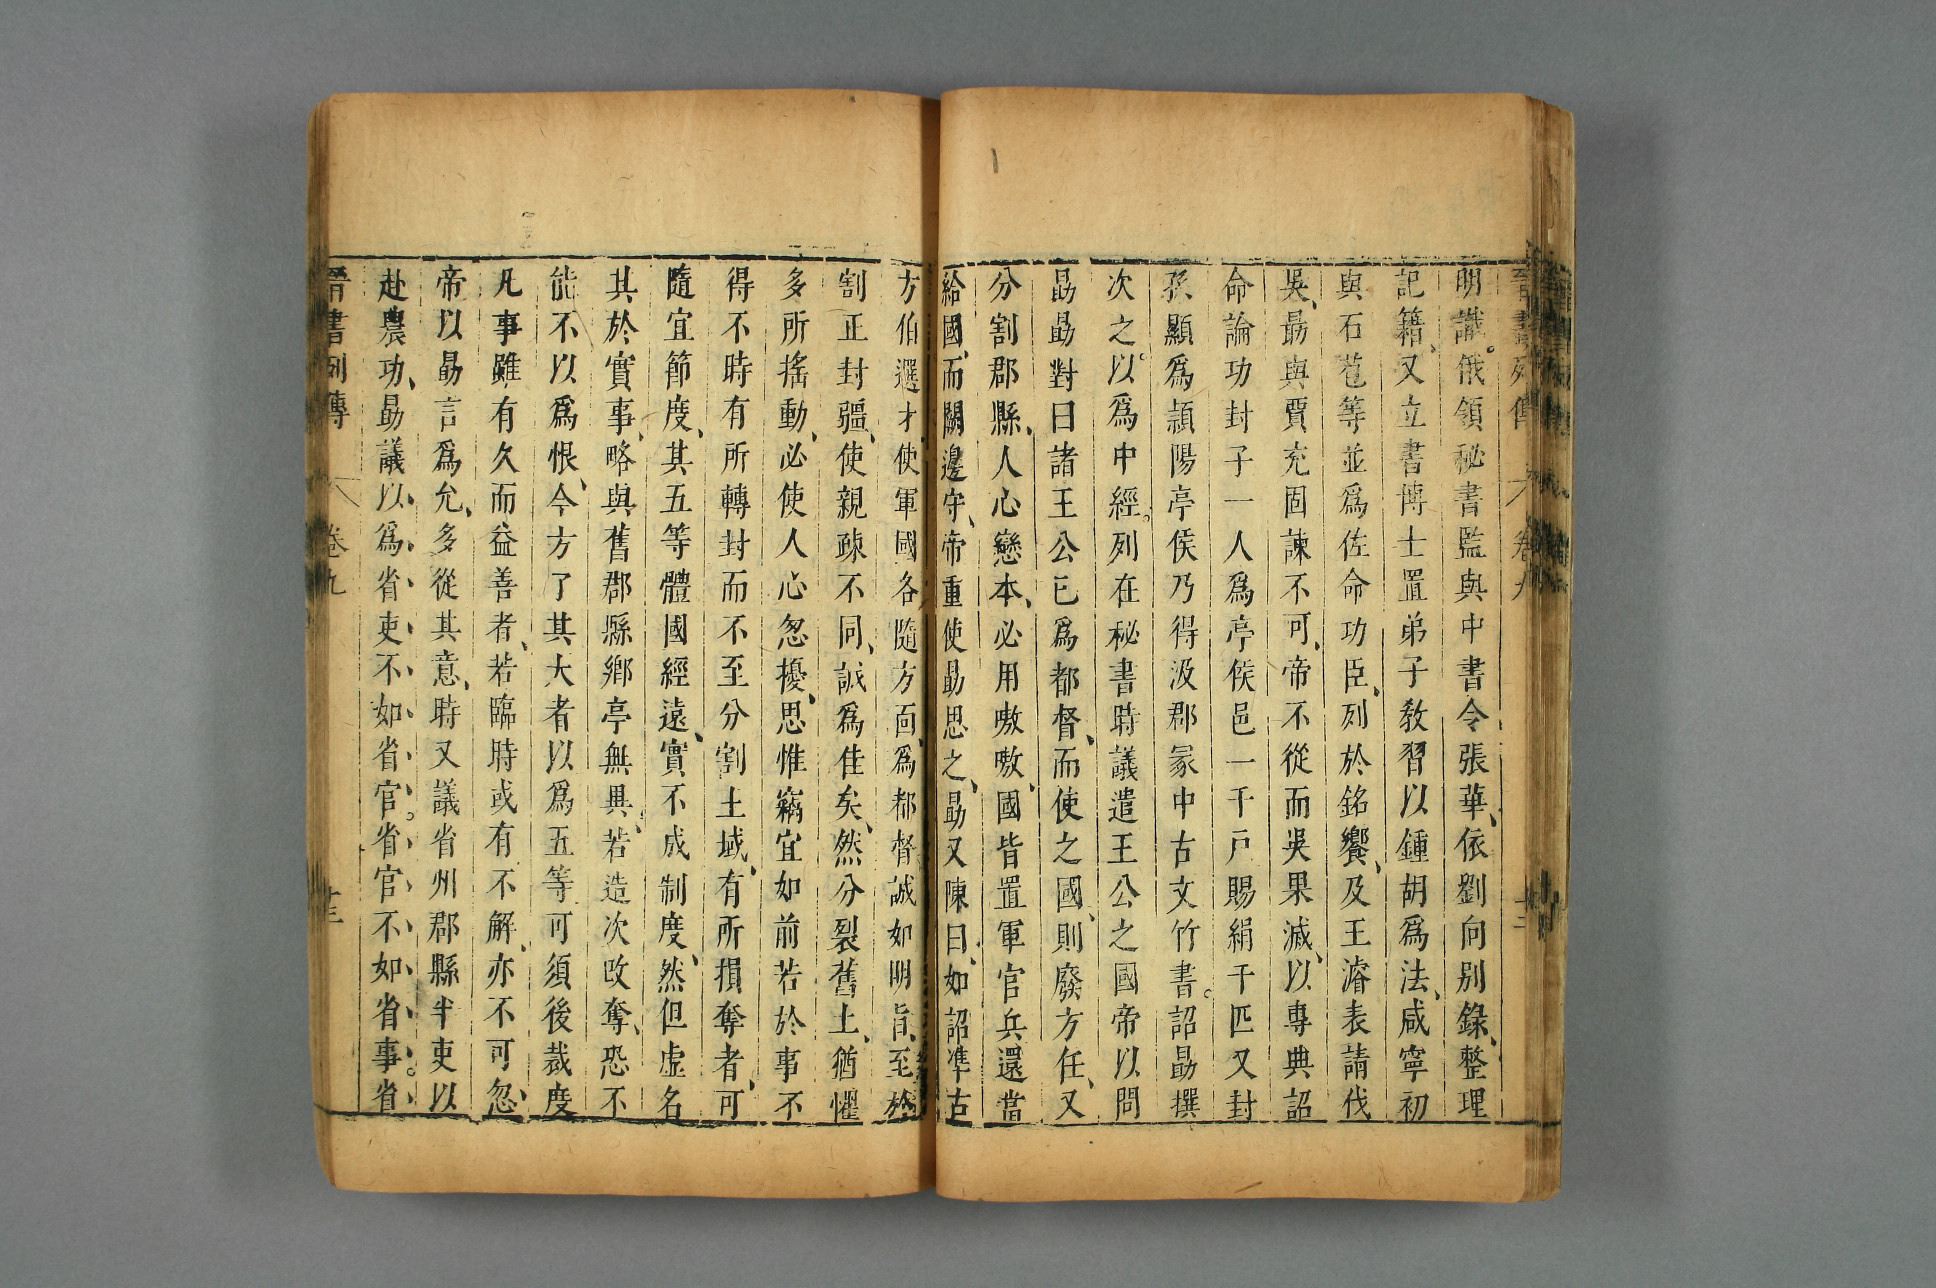 晉書列傳 卷九 十二
明識俄領秘書監與中書令張華依劉向別錄整理
記籍又立書博士置弟子教習以鍾胡爲法咸寧初
與石苞等並爲佐命功臣列於銘饗及王濬表請伐
吳勗與賈充固諫不可帝不從而吳果滅以專典詔
命論功封子一人爲亭侯邑一千戶賜絹千匹又封
孫顯爲潁陽亭侯乃得汲郡冢中古文竹書詔勗撰
次之以爲中經列在秘書時議遣王公之國帝以問
勗勗對曰諸王公已爲都督而使之國則廢方任又
分割郡縣人心戀本必用嗷嗷國皆置軍官兵還當
給國而闕邊守帝重使勗思之勗又陳曰如詔準古
方伯選才使軍國各隨方面爲都督誠如明旨至於
割正封疆使親疎不同誠爲佳矣然分裂舊土猶懼
多所搖動必使人心忽擾思惟竊宜如前若於事不
得不時有所轉封而不至分割土域有所損奪者可
隨宜節度其五等體國經遠實不成制度然但虛名
其於實事略與舊郡縣鄉亭無異若造次改奪恐不
能不以爲恨今方了其大者以爲五等可須後裁度
凡事雖有久而益善者若臨時或有不解亦不可忽
帝以勗言爲允多從其意時又議省州郡縣半吏以
赴農功勗議以爲省吏不如省官省官不如省事省
晉書列傳 卷九 十三